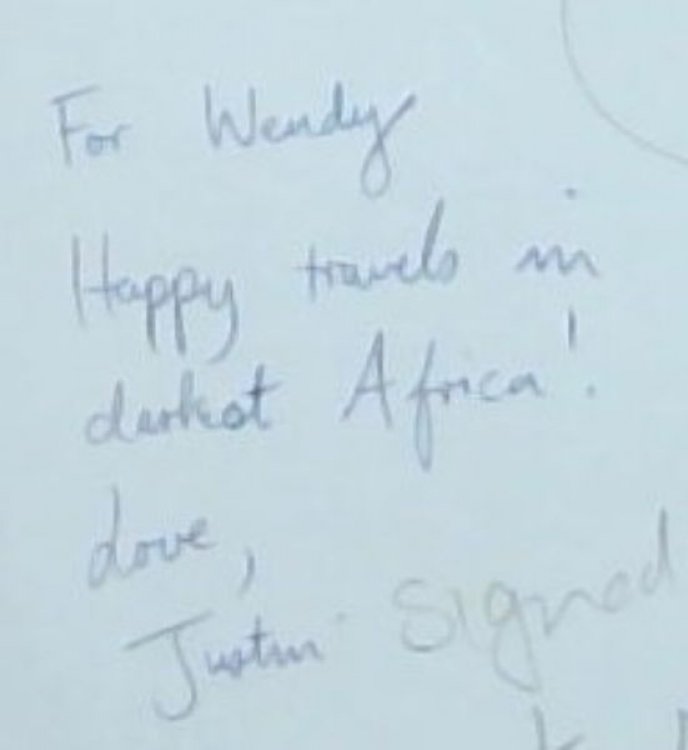 For Wendy
Happy travels in
darkest Africa!
Love,
Justin
Signed